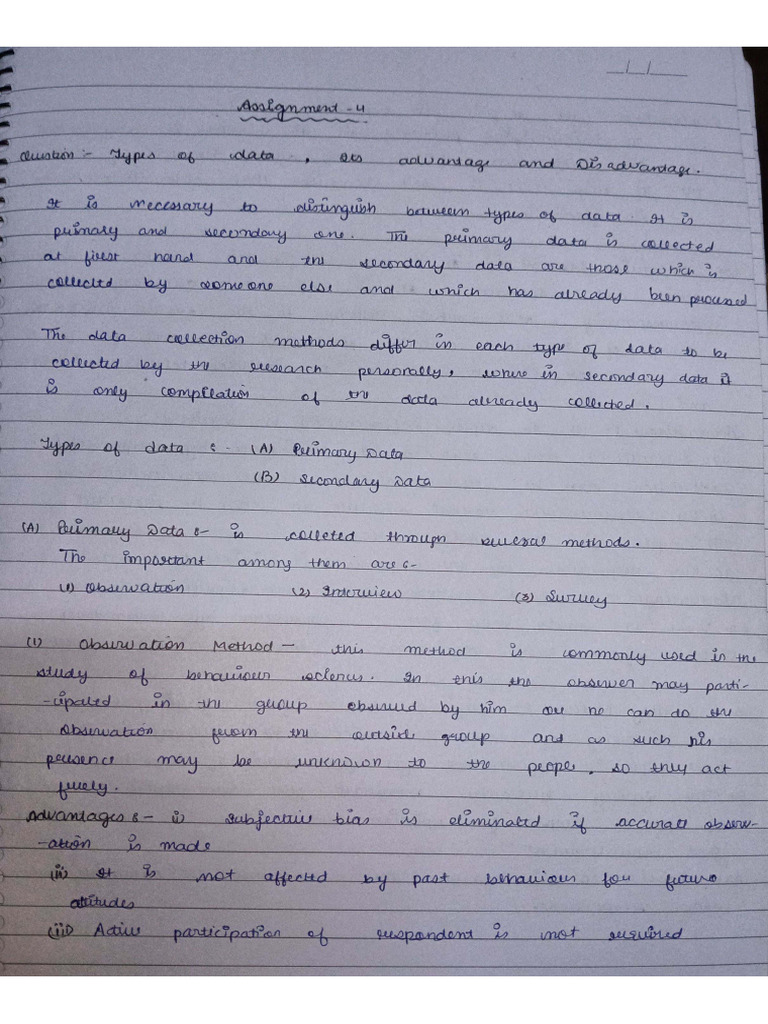 Assignment - 4
Question :- Types of data , its advantage and Disadvantage.
It is necessary to distinguish between types of data. It is
primary and secondary one. The primary data is collected
at first hand and the secondary data are those which is
collected by someone else and which has already been processed
The data collection methods differ in each type of data to be
collected by the research personally, where in secondary data it
is only compilation of the data already collected.
Types of data :- (A) Primary Data
(B) Secondary Data
(A) Primary Data :- is colleted through several methods.
The important among them are :-
(1) Observation (2) Interview (3) Survey
(1) Observation Method - this method is commonly used in the
study of behaviour science. In this the observer may parti-
-cipated in the group observed by him or he can do the
observation from the outside group and as such his
presence may be unknown to the people, so they act
freely.
Advantages :- i) Subjective bias is eliminated if accurate observ-
-ation is made
(ii) It is not affected by past behaviour for future
attitudes
(iii) Active participation of respondent is not required